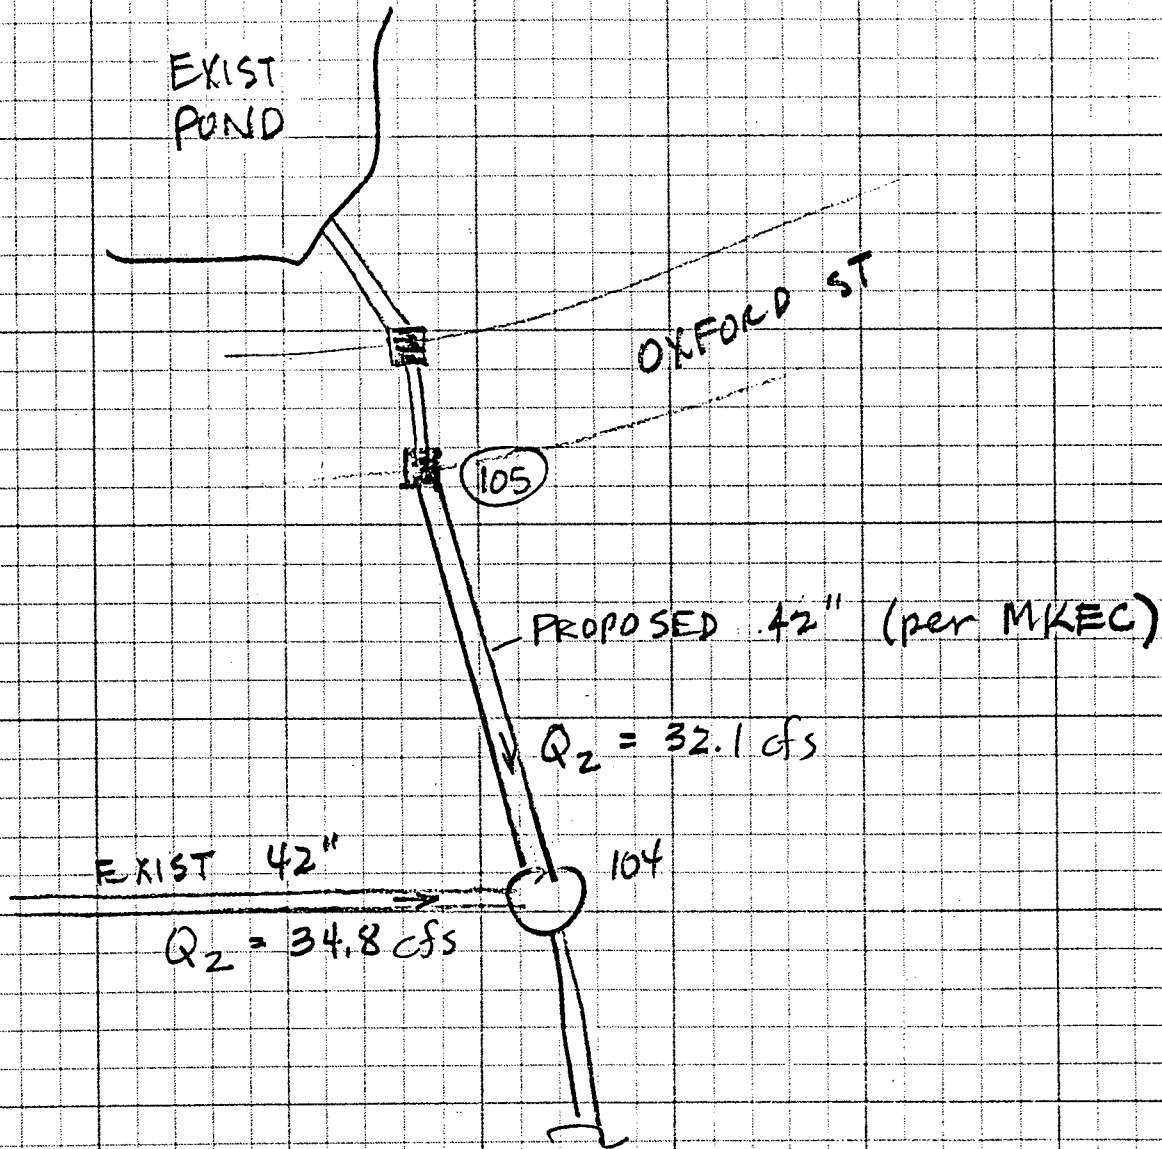 EXIST
POND
OXFORD ST
105
PROPOSED 42" (per MKEC)
Q2 = 32.1 cfs
EXIST 42"
104
Q2 = 34.8 cfs